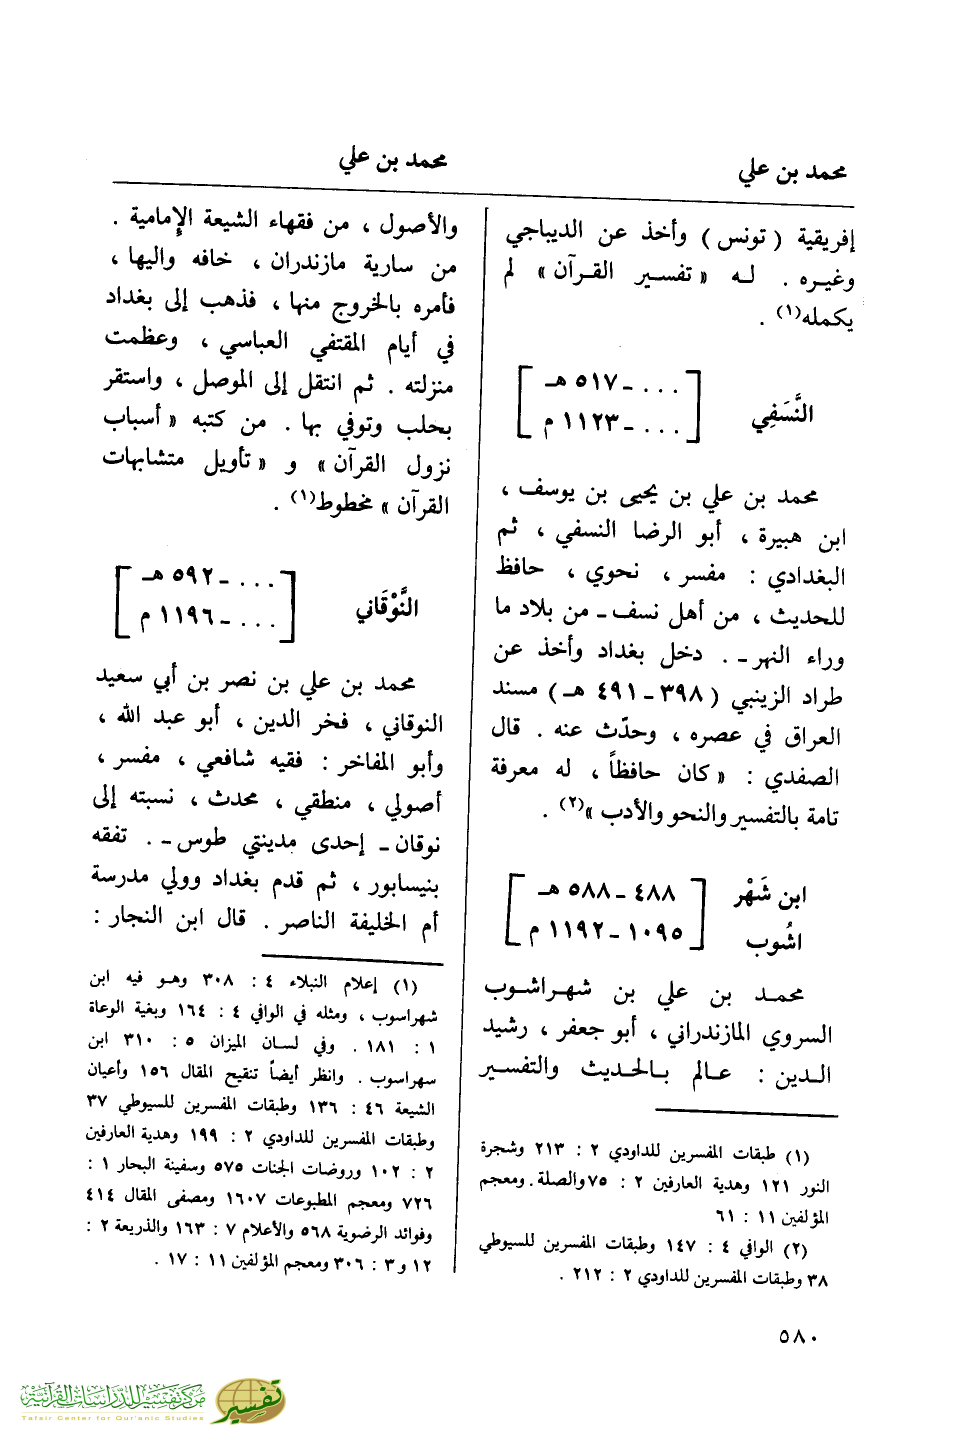 محمد بن علي
محمد بن علي
إفريقية ( تونس ) وأخذ عن الديباجي
وغيره . لـه « تفسـير القـرآن » لم
يكمله(١) .
النَّسَفِي
[ . . . ـ ٥١٧ هـ
. . . ـ ١١٢٣ م ]
محمد بن علي بن يحيى بن يوسف ،
ابن هبيرة ، أبو الرضا النسفي ، ثم
البغدادي : مفسر ، نحوي ، حافظ
للحديث ، من أهل نسف ـ من بلاد ما
وراء النهر ـ . دخل بغداد وأخذ عن
طراد الزينبي ( ٣٩٨ ـ ٤٩١ هـ ) مسند
العراق في عصره ، وحدّث عنه . قال
الصفدي : « كان حافظاً ، له معرفة
تامة بالتفسير والنحو والأدب »(٢) .
ابن شَهْر
اشُوب
[ ٤٨٨ ـ ٥٨٨ هـ
١٠٩٥ ـ ١١٩٢ م ]
محمـد بن علي بن شهـراشـوب
السروي المازندراني ، أبو جعفر ، رشيد
الدين : عـالم بـالحـديث والتفسير
(١) طبقات المفسرين للداودي ٢ : ٢١٣ وشجرة
النور ١٢١ وهدية العارفين ٢ : ٧٥ والصلة . ومعجم
المؤلفين ١١ : ٦١
(٢) الوافي ٤ : ١٤٧ وطبقات المفسرين للسيوطي
٣٨ وطبقات المفسرين للداودي ٢ : ٢١٢ .
والأصول ، من فقهاء الشيعة الإمامية .
من سارية مازندران ، خافه واليها ،
فأمره بالخروج منها ، فذهب إلى بغداد
في أيام المقتفي العباسي ، وعظمت
منزلته . ثم انتقل إلى الموصل ، واستقر
بحلب وتوفي بها . من كتبه « أسباب
نزول القرآن » و « تأويل متشابهات
القرآن » مخطوط(١) .
النَّوْقَاني
[ . . . ـ ٥٩٢ هـ
. . . ـ ١١٩٦ م ]
محمد بن علي بن نصر بن أبي سعيد
النوقاني ، فخر الدين ، أبو عبد الله ،
وأبو المفاخر : فقيه شافعي ، مفسر ،
أصولي ، منطقي ، محدث ، نسبته إلى
نوقان ـ إحدى مدينتي طوس ـ . تفقه
بنيسابور ، ثم قدم بغداد وولي مدرسة
أم الخليفة الناصر . قال ابن النجار :
(١) إعلام النبلاء ٤ : ٣٠٨ وهـو فيه ابن
شهراسوب ، ومثله في الوافي ٤ : ١٦٤ وبغية الوعاة
١ : ١٨١ . وفي لسـان الميزان ٥ : ٣١٠ ابن
سهراسوب . وانظر أيضاً تنقيح المقال ١٥٦ وأعيان
الشيعة ٤٦ : ١٣٦ وطبقات المفسرين للسيوطي ٣٧
وطبقات المفسرين للداودي ٢ : ١٩٩ وهدية العارفين
٢ : ١٠٢ وروضات الجنات ٥٧٥ وسفينة البحار ١ :
٧٢٦ ومعجم المطبوعات ١٦٠٧ ومصفى المقال ٤١٤
وفوائد الرضوية ٥٦٨ والأعلام ٧ : ١٦٣ والذريعة ٢ :
١٢ و ٣ : ٣٠٦ ومعجم المؤلفين ١١ : ١٧ .
٥٨٠
مركز تفسير للدراسات القرآنية
Tafsir Center for Qur'anic Studies
تفسير